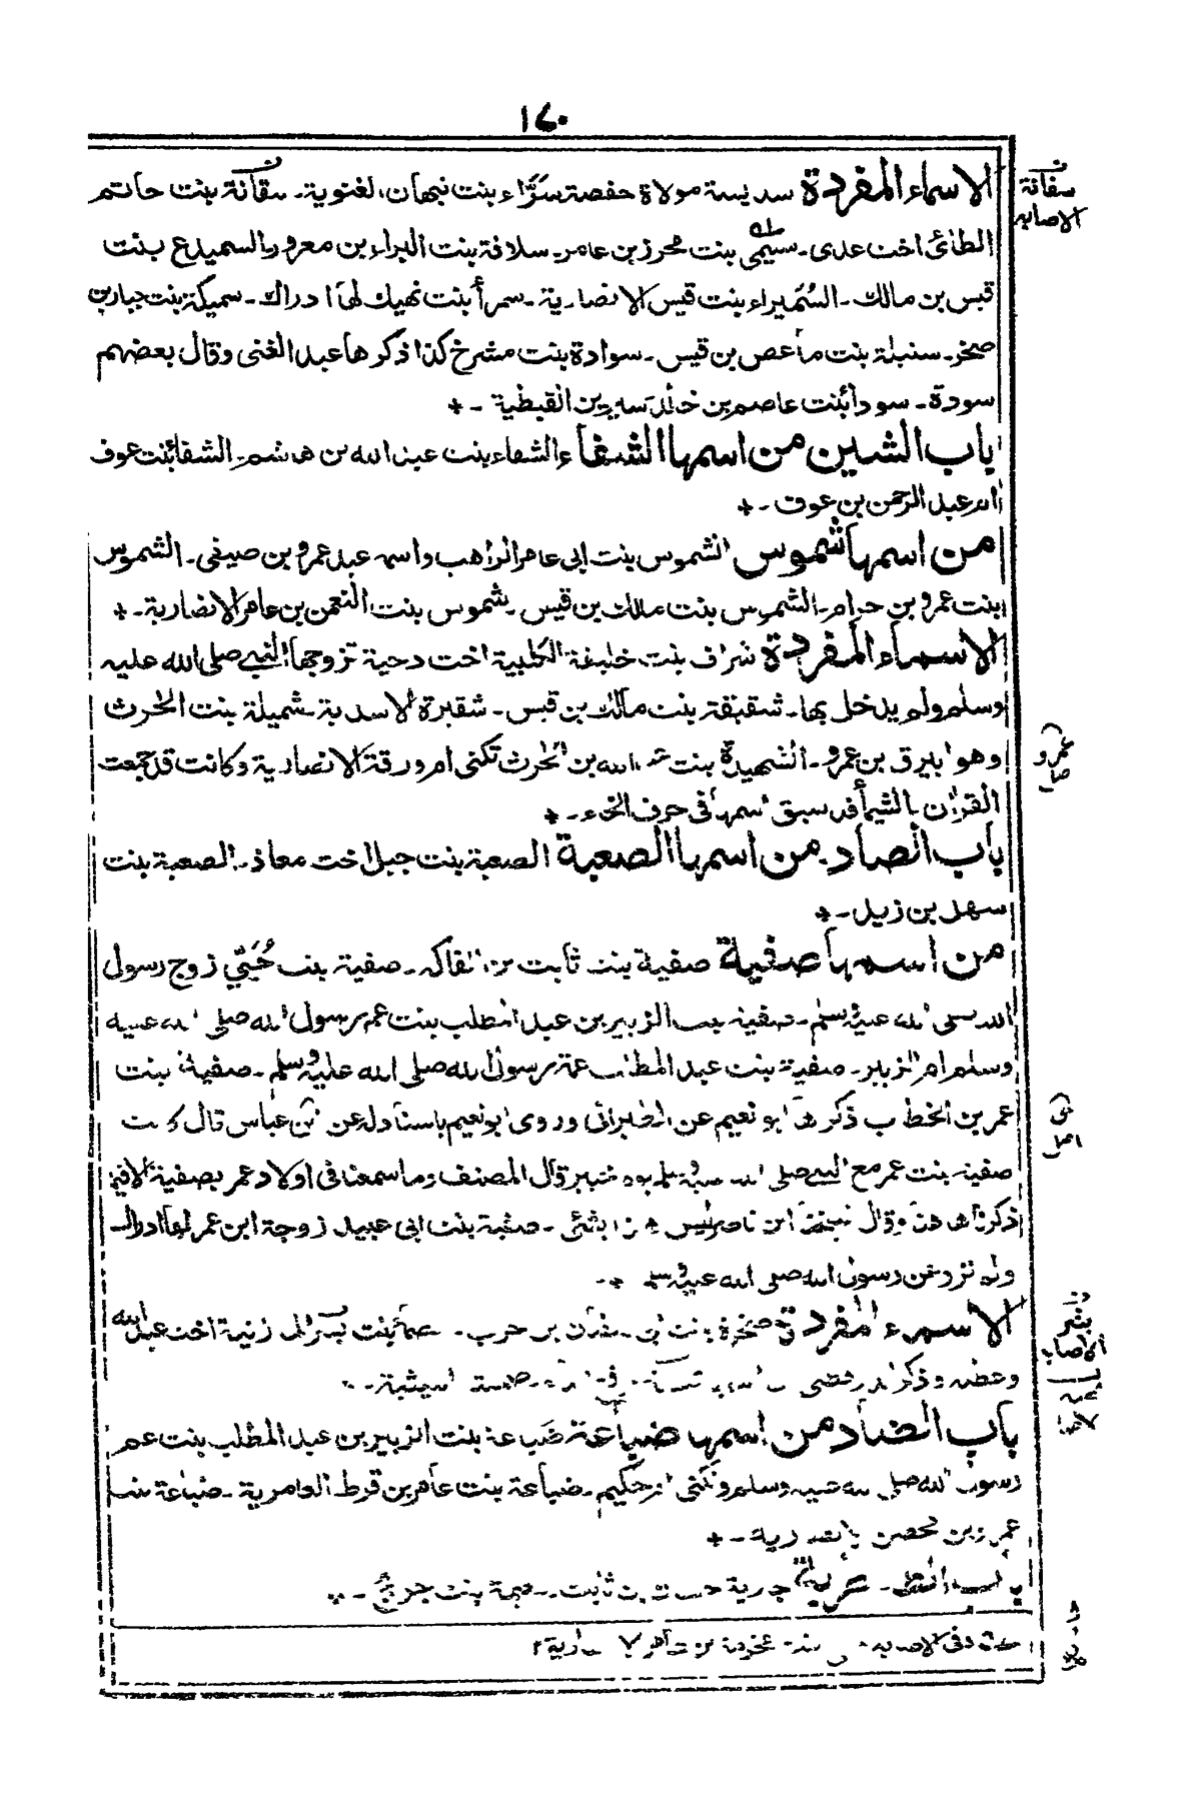 ١٧٠
الاسماء المفردة سديسة مولاة حفصة سرّاء بنت نبهان الغنوية۔ سفانة بنت حاتم
سفانة
الاصابه
الطائى اخت عدى۔ بنت محرز بن عامر۔ سلافة بنت البراء بن معرور السميدع بنت
قيس بن مالك۔ السُمَيراء بنت قيس الانصارية۔ سمرأ بنت نهيك لها ادراك۔ سميكة بنت جبار بن
صخر۔ سنبلة بنت ماعص بن قيس۔ سوادة بنت مشرخ كذا ذكرها عبد الغنى وقال بعضهم
سودة۔ سودا بنت عاصم بن خالد سيرين القبطية ۔+
باب الشين من اسمها الشفاء الشفاء بنت عبد الله بن هاشم۔ الشفا بنت عوف
ام عبد الرحمن بن عوف ۔+
من اسمها شموس الشموس بنت ابى عامر الراهب واسمه عبد عمرو بن صيفى۔ الشموس
بنت عمرو بن حرام۔ الشموس بنت مالك بن قيس۔ شموس بنت النعمن بن عامر الانصارية۔+
الاسماء المفردة شراف بنت خليفة الكلبية اخت دحية تزوجها النبي صلى الله عليه
وسلم ولم يدخل بها۔ شقيقة بنت مالك بن قيس۔ شقيرة الاسدية۔ شميلة بنت الحرث
وهو ابيرق بن عمرو۔ الشهيدة بنت عبد الله بن الحرث تكنى ام ورقة الانصارية وكانت قد جمعت
عمرو
القران۔ الشيماء قد سبق اسمها فى حرف الحاء ۔+
باب الصاد۔ من اسمها الصعبة الصعبة بنت جبل اخت معاذ۔ الصعبة بنت
سهل بن زيد۔+
من اسمها صفية صفية بنت ثابت بن الفاكه۔ صفية بنت حُيَيّ زوج رسول
الله صلى الله عليه وسلم۔ صفية بنت الزبير بن عبد المطلب بنت عم رسول الله صلى الله عليه
وسلم ام الزبير۔ صفية بنت عبد المطلب عمة رسول الله صلى الله عليه وسلم۔ صفية بنت
عمر بن الخطاب ذكرها ابو نعيم عن الطبرانى وروى ابو نعيم باسناده عن ابن عباس قال كانت
صفية بنت عمر مع النبي صلى الله عليه وسلم يوم خيبر قال المصنف وما سمعنا فى اولاد عمر بصفية الا فيما
ذكرناه هنا وقال شيخنا ابن ناصر ليس هذا بشئى۔ صفية بنت ابى عبيد زوجة ابن عمر لها ادراك
ولم ترو عن رسول الله صلى الله عليه وسلم ۔+
الاسماء المفردة صخرة بنت ابى سفيان بن حرب۔ صماء بنت بسر المازنية اخت عبد الله
الاصابه
باب الضاد من اسمها ضباعة ضباعة بنت الزبير بن عبد المطلب بنت عم
رسول الله صلى الله عليه وسلم وتكنى ام حكيم۔ ضباعة بنت عامر بن قرط العامرية۔ ضباعة بنت
بن محصن الانصارية ۔+